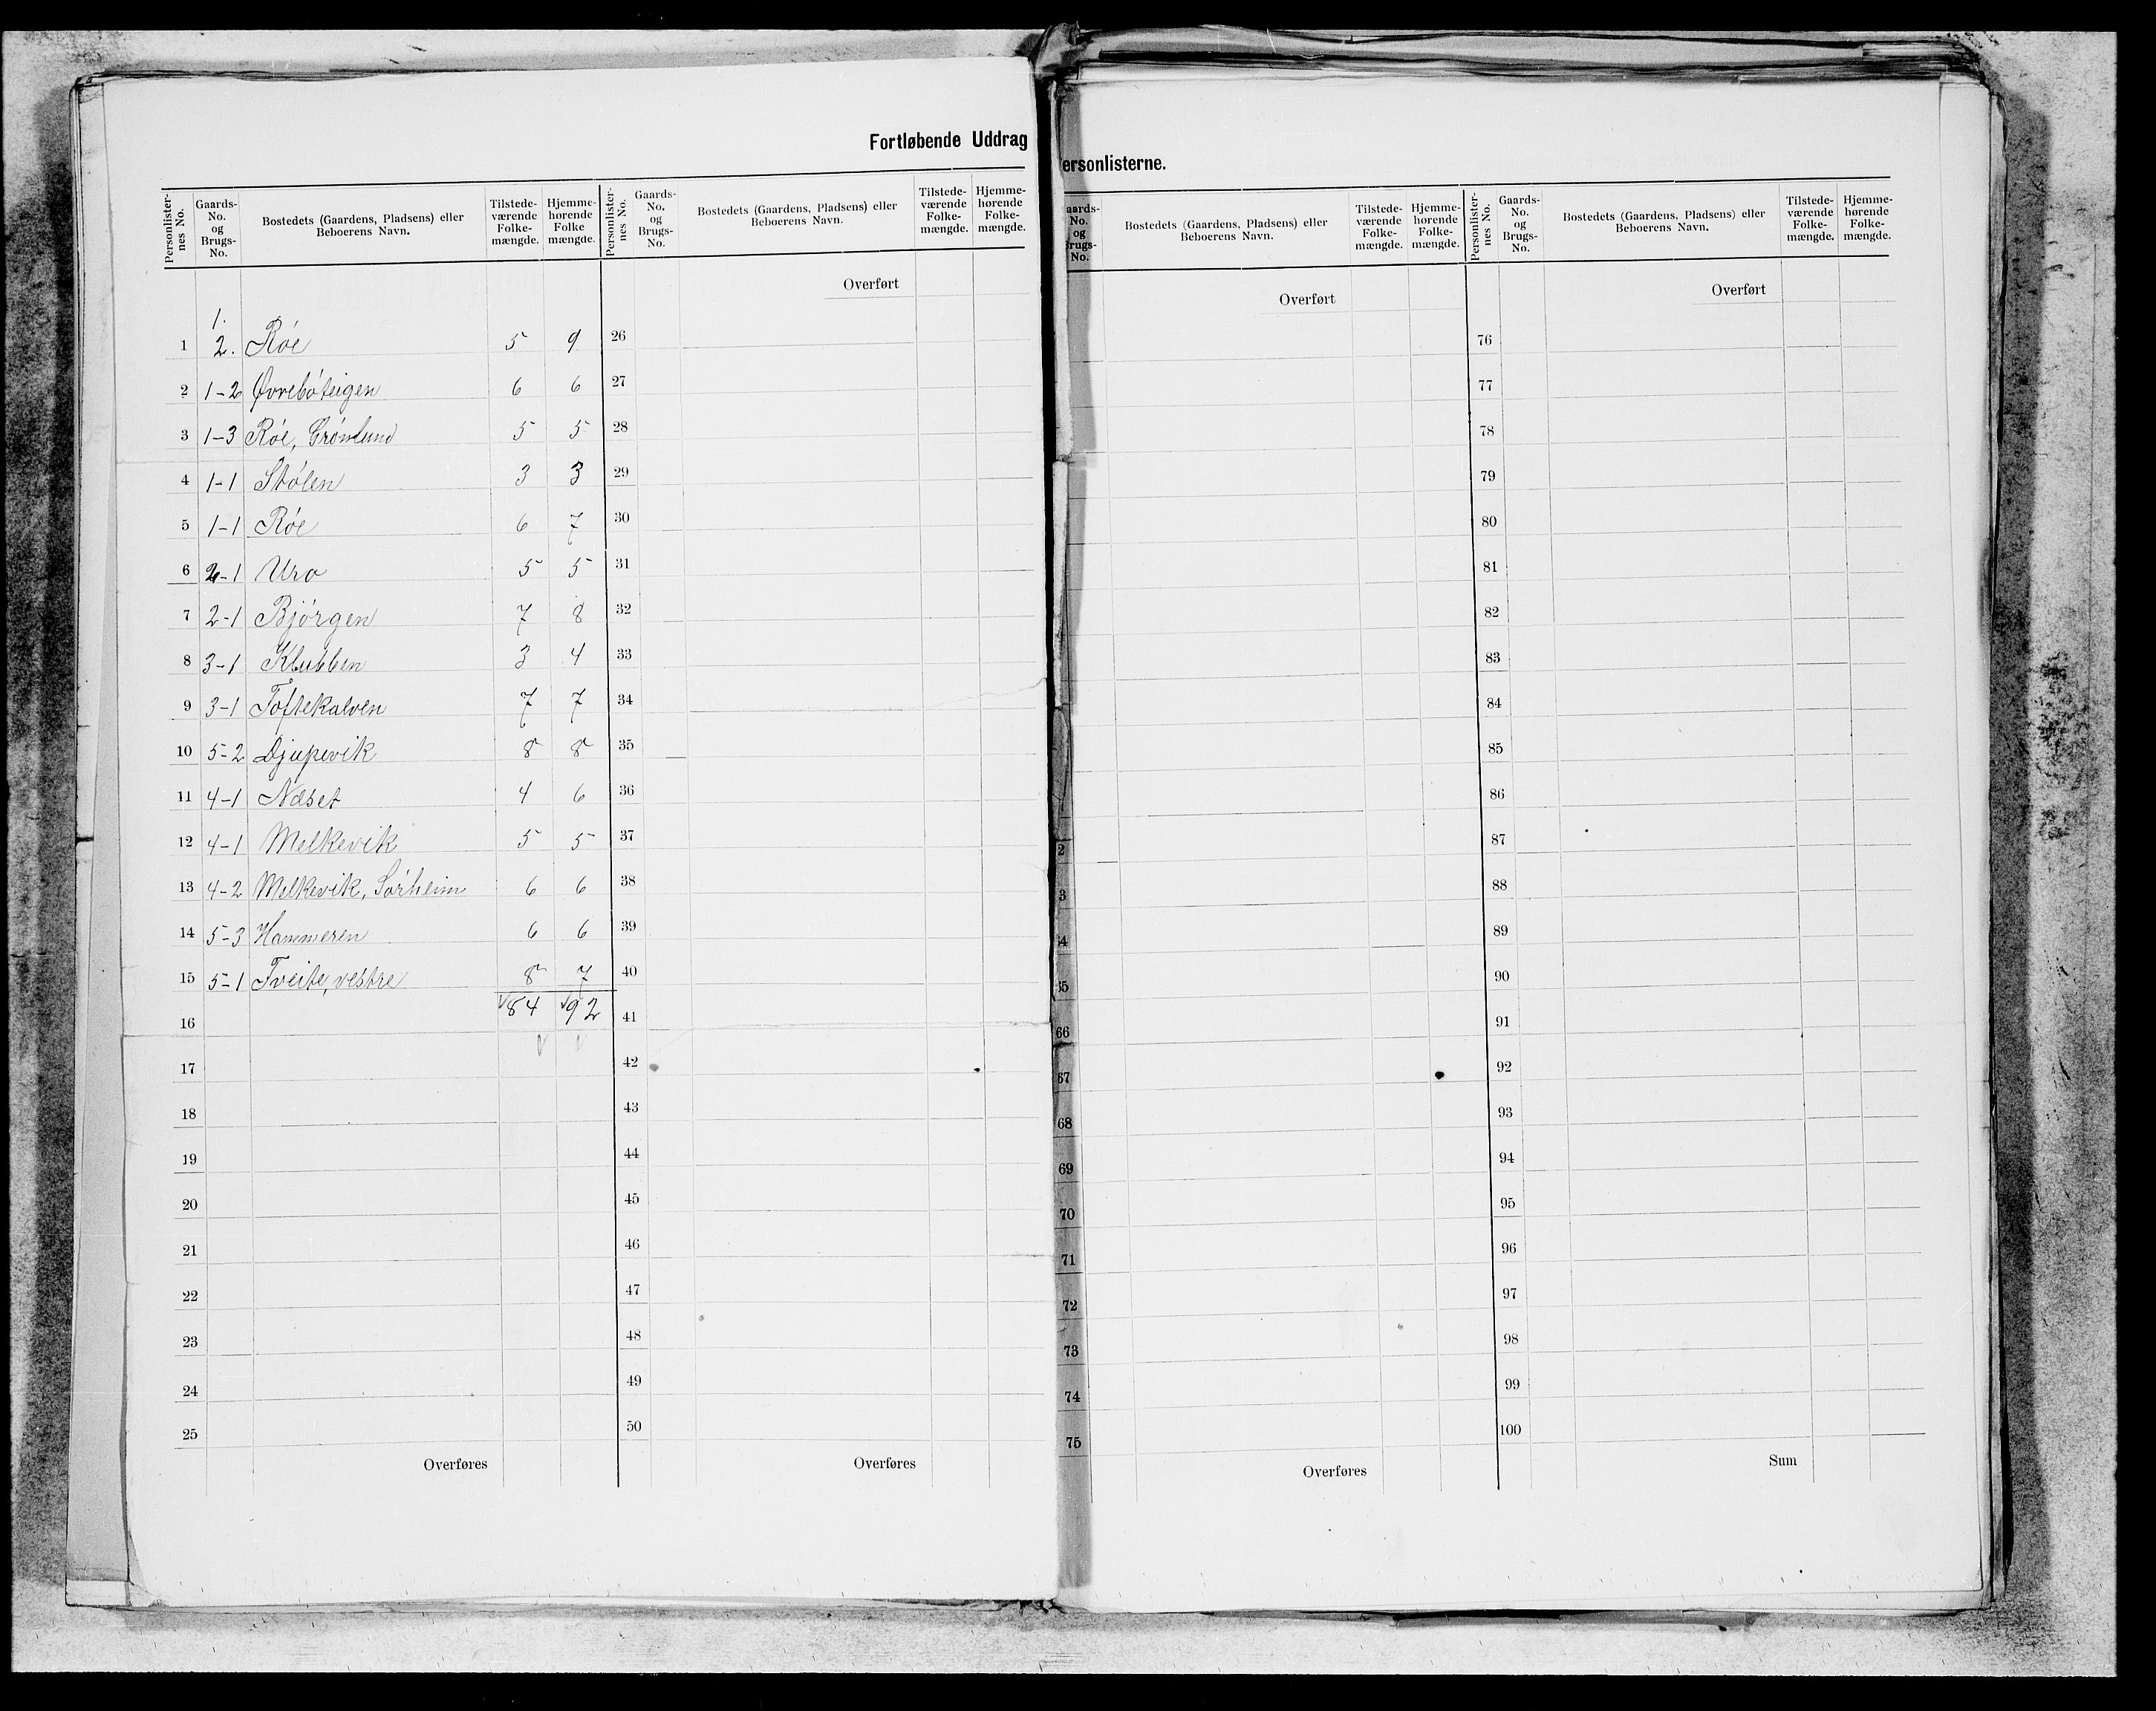 Fortløbende Uddrag
ersonlisterne.
Personlister-nes No. Gaards-No. og Brugs-No. Bostedets (Gaardens, Pladsens) eller Beboerens Navn. Tilstede-værende Folke-mængde. Hjemme-hørende Folke mængde. Personlister-nes No. Gaards-No. og Brugs-No. Bostedets (Gaardens, Pladsens) eller Beboerens Navn. Tilstede-værende Folke-mængde. Hjemme-hørende Folke-mængde.
Overført
1.
1 2. Róe 5 9 26
2 1-2 Øvrebóteigen 6 6 27
3 1-3 Róe, Grónlund 5 5 28
4 1-1 Stólen 3 3 29
5 1-1 Róe 6 7 30
6 2-1 Ura 5 5 31
7 2-1 Bjórgen 7 8 32
8 3-1 Klubben 3 4 33
9 3-1 Toftekalven 7 7 34
10 5-2 Djupevik 8 8 35
11 4-1 Næset 4 6 36
12 4-1 Melkevik 5 5 37
13 4-2 Melkevik, Sórheim 6 6 38
14 5-3 Hammeren 6 6 39
15 5-1 Tveite, vestre 8 7 40
16 84 92 41
17 42
18 43
19 44
20 45
21 46
22 47
23 48
24 49
25 50
Overføres Overføres
aards-No. og rugs-No. Bostedets (Gaardens, Pladsens) eller Beboerens Navn. Tilstede-værende Folke-mængde. Hjemme-hørende Folke-mængde. Personlister-nes No. Gaards-No. og Brugs-No. Bostedets (Gaardens, Pladsens) eller Beboerens Navn. Tilstede-værende Folke-mængde. Hjemme-hørende Folke-mængde.
Overført Overført
76
77
78
79
80
81
82
83
84
85
86
2 87
3 88
64 89
65 90
66 91
67 92
68 93
69 94
70 95
71 96
72 97
73 98
74 99
75 100
Overføres Sum